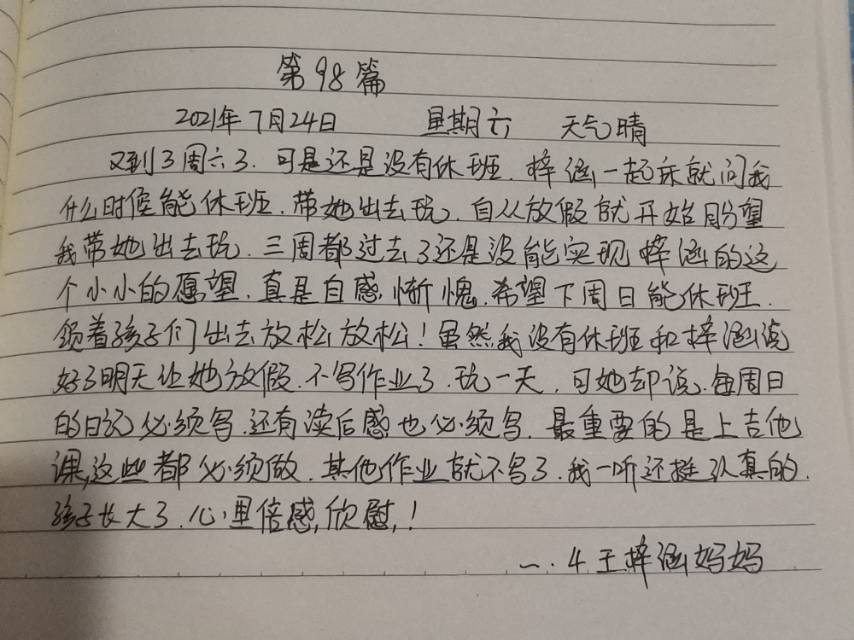 第98篇
2021年7月24日 星期六 天气晴
又到了周六了.可是还是没有休班.梓涵一起床就问我
什么时候能休班.带她出去玩.自从放假就开始盼望
我带她出去玩.三周都过去了还是没能实现梓涵的这
个小小的愿望.真是自感惭愧.希望下周日能休班.
领着孩子们出去放松放松!虽然我没有休班和梓涵说
好了明天让她放假.不写作业了.玩一天.可她却说.每周日
的日记必须写.还有读后感也必须写.最重要的是上吉他
课,这些都必须做.其他作业就不写了.我一听还挺认真的.
孩子长大了.心里倍感,欣慰,!
一.4王梓涵妈妈